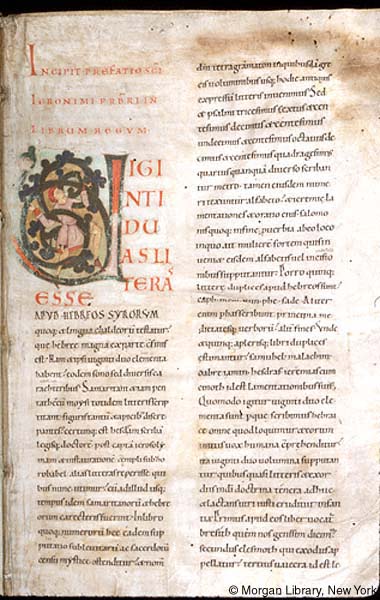 INCIPIT PREFATIO SCI
IERONIMI PRBRI IN
LIBRUM REGUM
VIGI
NTI
DU
AS LI
TERAS
ESSE
APUD HEBREOS SYRORUM
quoq; et lingua chaldeoru testatur
que hebree magna ex parte cfinis
est. Nam et ipsi viginti duo elementa
habent eodem sono sed diversis ca
racteribus. Samaritani etiam pen
tatheucu moysi totidem litteris scrip
titant figuris tantu et apicib; discre
pantes. certumq; est hesdram scriba
legisq; doctore post capta ierosoly
mam et instauratione templi sub zo
robabel alias litteras repperisse qui
bus nunc utimur cu ad illud usq;
tempus idem samaritanoru et hebre
orum caracteres fuerint. In libro
quoq; numeroru hec eadem sup
putatio sub levitaru ac sacerdotu
censu mystice ostenditur et nom
dni tetragramaton in quibusda gre
cis voluminibus usq; hodie antiquis
expressu litteris invenimus. Sed
et psalmi tricesimus sextus et cen
tesimus decimus et centesimus
undecimus et centesimus octavus de
cimus et centesimus quadragesimus
quartus quanqua diverso scriban
tur metro tamen eiusdem nume
ri texuntur alfabeto. et ieremie la
mentationes et oratio eius salomo
nis quoq; in fine proverbia ab eo loco
in quo ait muliere fortem quis in
veniet eisdem alfabetis vel incisio
nibus supputantur. Porro quinq;
littere duplices apud hebreos sunt
caph mem nun phe sade. Aliter eni
cum
Quomodo igitur viginti duo ele
menta sunt p que scribimus hebrai
ce omne quod loquimur et eorum
initiis vox humana cprehenditur
ita viginti duo volumina supputan
tur quibus quasi litteris et exor
diis in di doctrina tenera adhuc
et lactans viri iusti eruditur infan
tia. Primus apud eos liber vocat
bresith que nos genesim dicim;
secundus elesmoth qui exodus ap
pellatur. tertius vaiecra id est le
© Morgan Library, New York